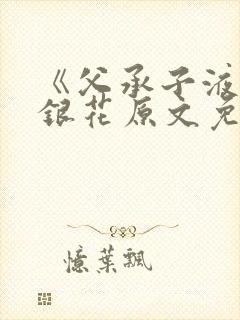 《父承子液
銀花原文免
憶葉飄